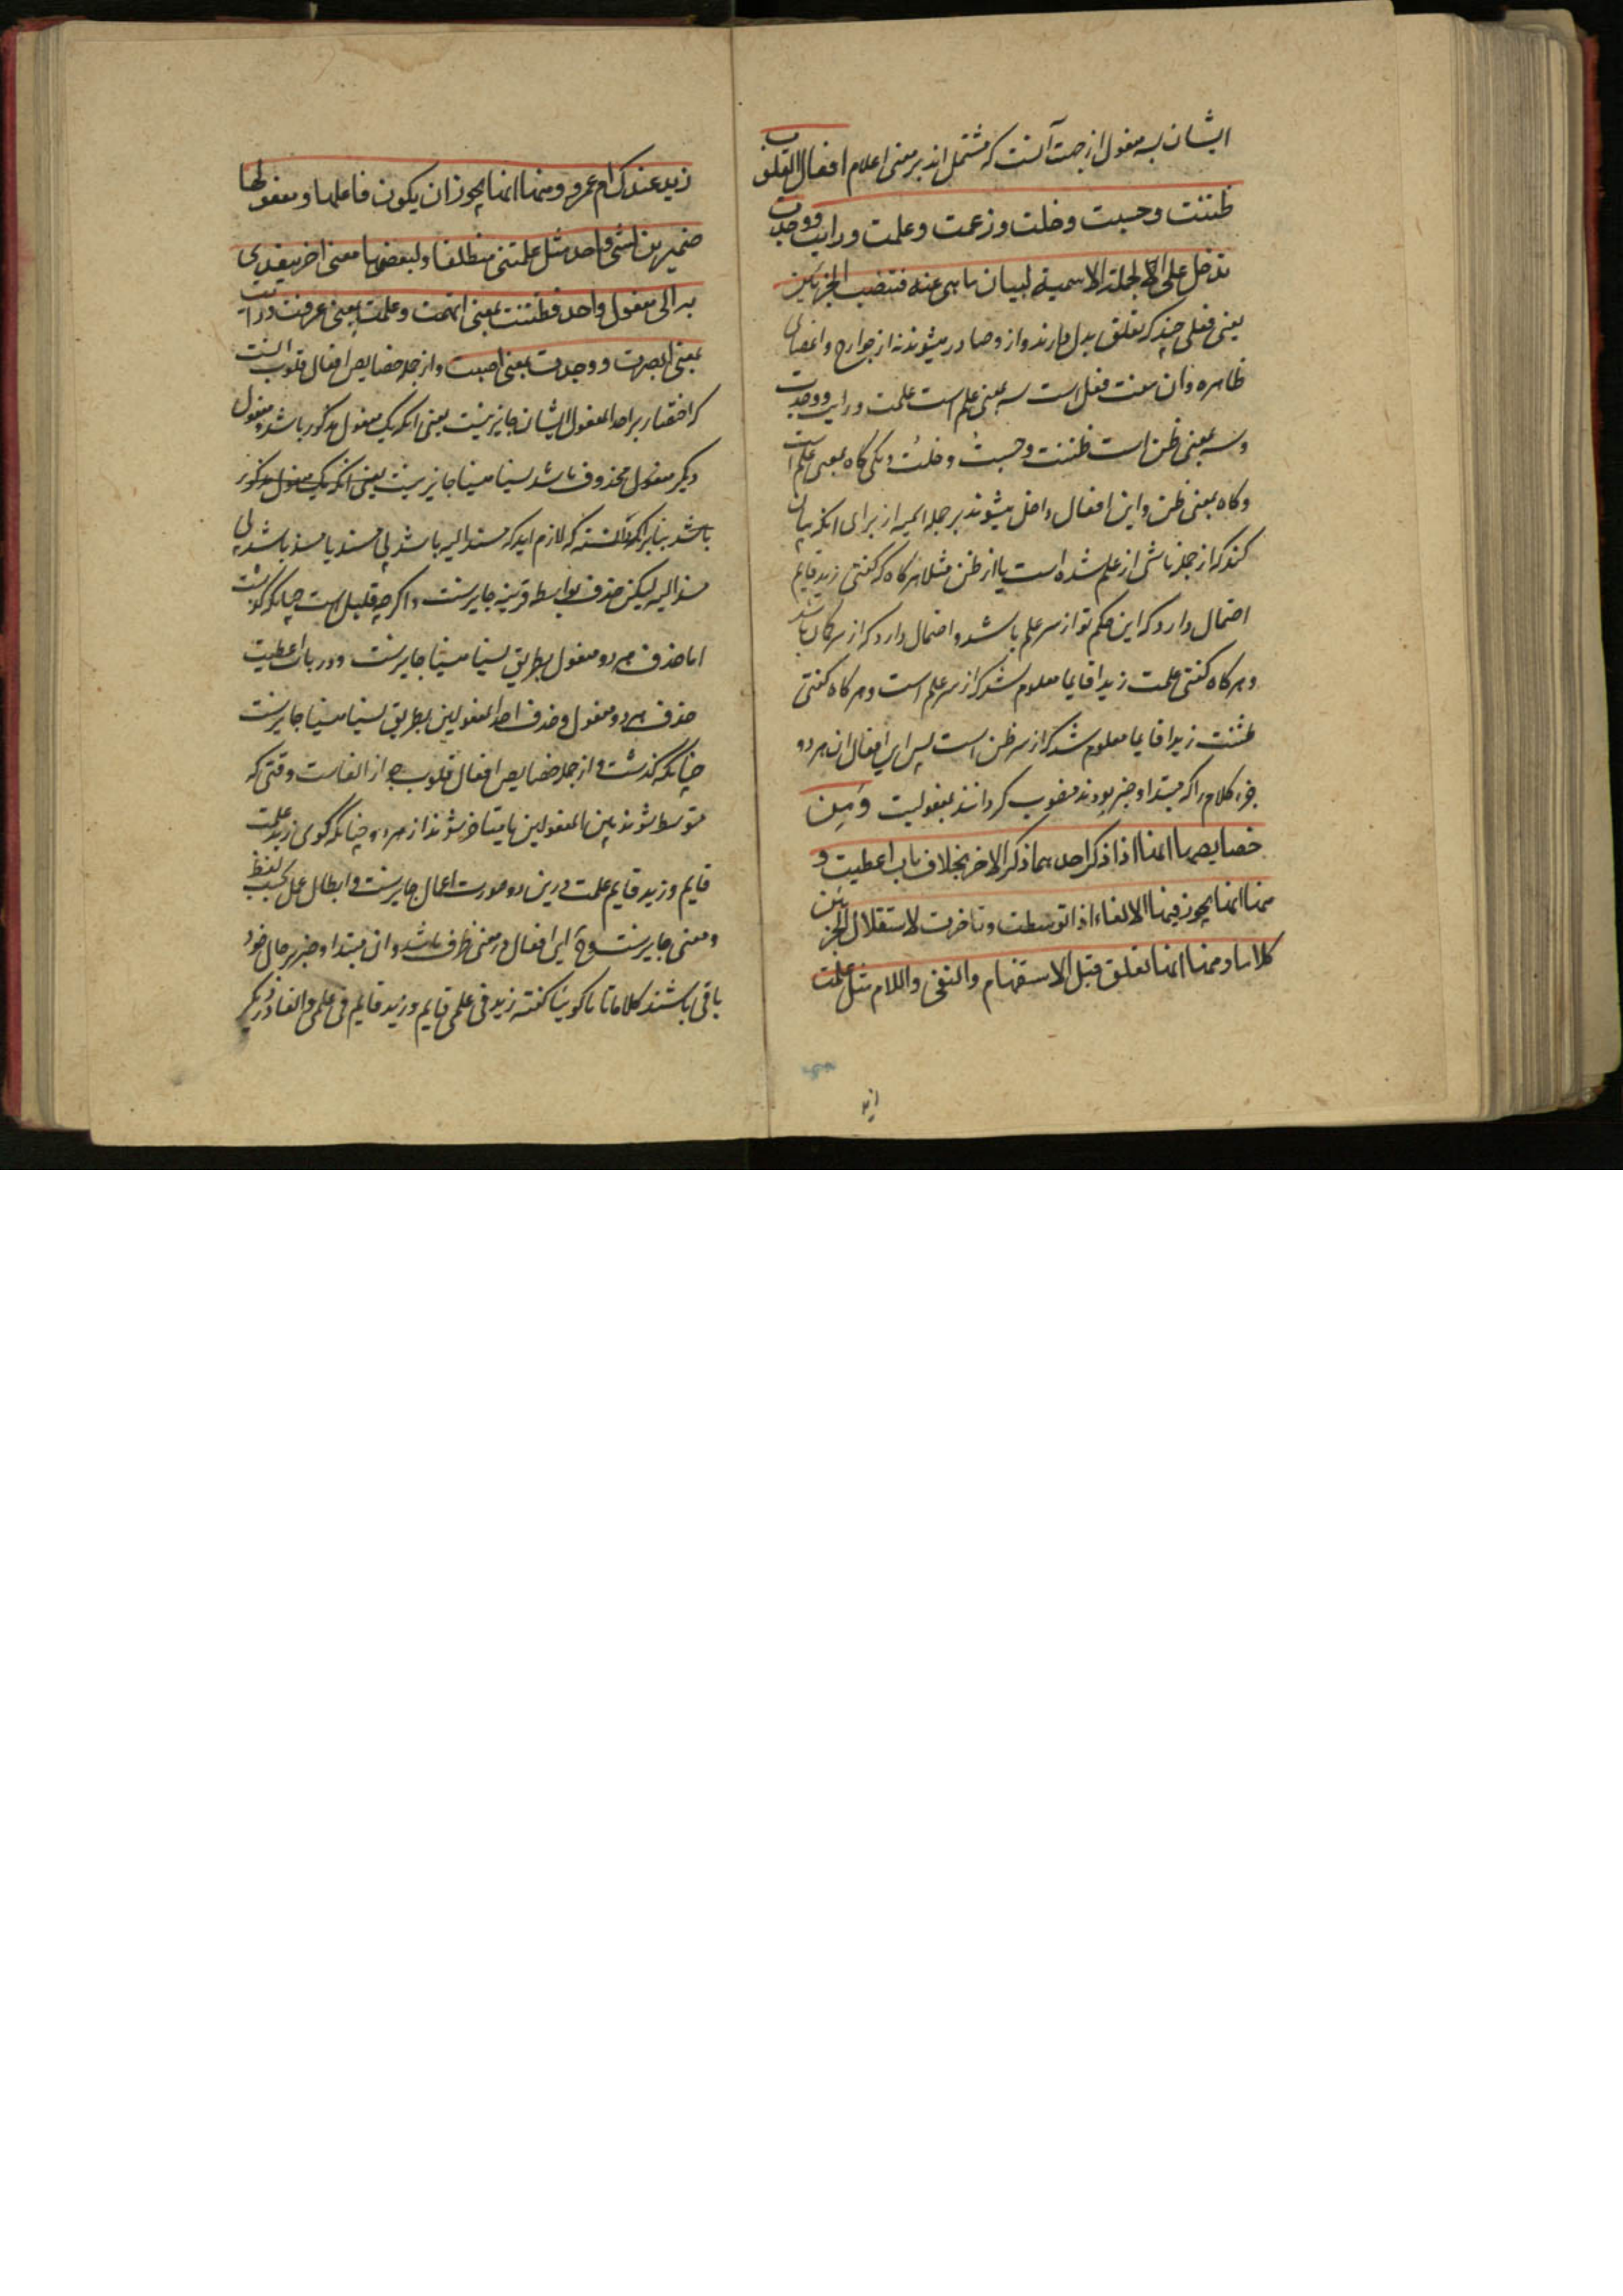 ایشان بسه مفعول از جهت آنست که مشتمل اند بر معنی اعلام افعال القلوب
ظننت وحسبت وخلت وزعمت وعلمت ورایت ووجدت
تدخل علی الجملة الاسمیة لبیان ما هی عنه فتنصب الجزئین
یعنی فعلی چند که تعلق بدل دارند و از و صادر میشوند نه از جوارح و اعضای
ظاهره وان هفت فعل است سه بمعنی علم است علمت ورایت ووجدت
وسه بمعنی ظن است ظننت وحسبت وخلت ویکی گاه بمعنی علم است
وگاه بمعنی ظن و این افعال داخل میشوند بر جمله اسمیه از برای انکه بیان
کنند که از جمله ناشی از علم شده است یا از ظن مثلا هرگاه که گفتی زید قایم
احتمال دارد که این حکم تو از سر علم باشد و احتمال دارد که از سر گمان باشد
وهرگاه گفتی علمت زیدا قایما معلوم شد که از سر علم است وهرگاه گفتی
ظننت زیدا قایما معلوم شد که از سر ظن است پس این افعال ان هر دو
جزء کلام را که مبتدا و خبر بودند منصوب گردانند بمفعولیت ومن
خصایصها انها اذا ذکر احدهما ذکر الاخر بخلاف باب اعطیت و
منها انها یجوز فیها الالغاء اذا توسطت وتاخرت لاستقلال الجزئین
کلاما ومنها انها تعلق قبل الاستفهام والنفی واللام مثل علمت
ازید
زید عندک ام عمرو ومنها انها یجوز ان یکون فاعلها ومفعولها
ضمیرین لشئ واحد مثل علمتنی منطلقا ولبعضها معنی اخر یتعدی
به الی مفعول واحد فظننت بمعنی اتهمت وعلمت بمعنی عرفت ورایت
بمعنی ابصرت ووجدت بمعنی اصبت واز جمله خصایص افعال قلوب انست
که اختصار بر احد المفعول ایشان جایز نیست یعنی انکه یک مفعول مذکور باشد ومفعول
دیگر مفعول محذوف باشد نسیا منسیا جایز نیست یعنی انکه یک مفعول مذکور
باشد بنابر انکه لازم اید که مسند الیه باشد بی مسند یا مسند باشد بی
مسند الیه لیکن حذف بواسطه قرینه جایز است واگر چه قلیل است چنانکه گذشت
اما حذف هر دو مفعول بطریق نسیا منسیا جایز است ودر باب اعطیت
حذف هر دو مفعول وحذف احد المفعولین بطریق نسیا منسیا جایز است
چنانکه گذشت و از جمله خصایص افعال قلوب جواز الغاست وقتی که
متوسط شوند بین المفعولین یا متاخر شوند از هر دو چنانکه گوی زید علمت
قایم وزید قایم علمت درین دو صورت اعمال جایز است و ابطال عمل بحسب لفظ
ومعنی جایز است و این افعال در معنی ظرف باشد وان مبتدا و خبر بر حال خود
باقی باشند کلاما تا گوییا گفته زید فی علمی قایم وزید قایم فی علمی والغا دیگر